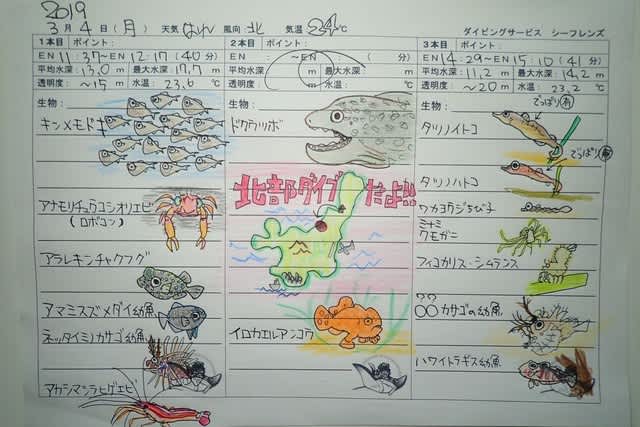 2019
3月4日(月) 天気 はれ 風向 北 気温 24℃
ダイビングサービス シーフレンズ
1本目 ポイント:
EN 11:37~EN 12:17 (40分)
平均水深: 13.0 m 最大水深: 17.7 m
透明度: ~15 m 水温: 23.6 ℃
生物:
キンメモドキ
アナモリチュウコシオリエビ
(ロボコン)
アラレキンチャクフグ
アマミスズメダイ幼魚
ネッタイミノカサゴ幼魚
アカシマシラヒゲエビ
2本目 ポイント:
EN ~EN ( 分)
平均水深: m 最大水深: m
透明度: m 水温: ℃
生物:
ドクウツボ
北部ダイブだよ!!
イロカエルアンコウ
3本目 ポイント:
EN 14:29~EN 15:10 (41分)
平均水深: 11.2 m 最大水深: 14.2 m
透明度: ~20 m 水温: 23.2 ℃
生物:
でっぱり有
タツノイトコ
でっぱり無
タツノハトコ
ワカヨウジちび子
ミナミクモガニ
フィコカリス・シムランス
??
〇〇カサゴの幼魚
ハワイトラギス幼魚